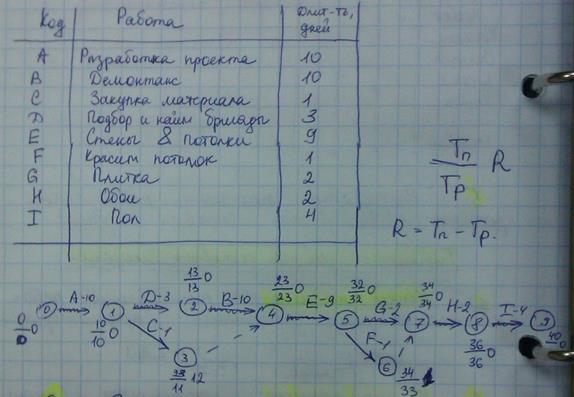 Код Работа Длит-ть, дней
A Разработка проекта 10
B Демонтаж 10
C Закупка материала 1
D Подбор и найм бригады 3
E Стены & потолки 9
F Красим потолок 1
G Плитка 2
H Обои 2
I Пол 4
Tп
Tр R
R = Tп - Tр.
0 A-10 1 D-3 2 B-10 4 E-9 5 G-2 7 H-2 8 I-4 9
0/0 0
10/10 0
13/13 0
23/23 0
32/32 0
34/34 0
36/36 0
40 0
C-1
3
11 12
F-1
6
34/33